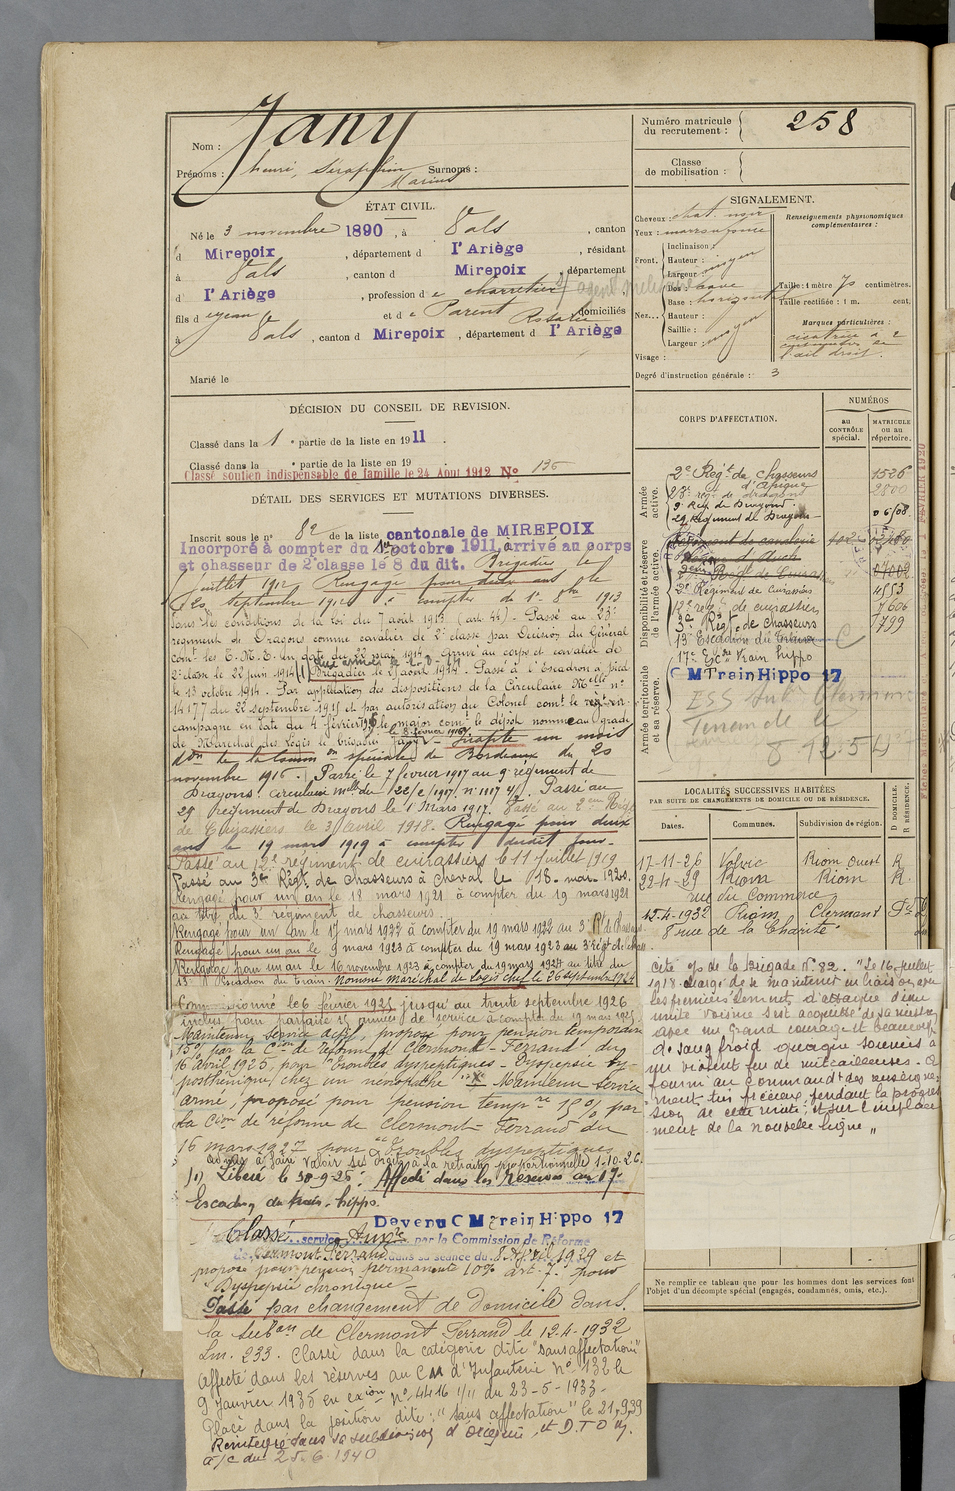 Nom : Jany
Prénoms : henri, Séraphin Marius Surnoms :
ÉTAT CIVIL.
Né le 3 novembre 1890, à Vals, canton
d Mirepoix, département d l'Ariège, résidant
à Vals, canton d Mirepoix, département
d' l'Ariège, profession de charretier
fils d Jean et de Parent Rosalie domiciliés
à Vals, canton d Mirepoix, département d l'Ariège
Marié le
DÉCISION DU CONSEIL DE REVISION.
Classé dans la 1e partie de la liste en 1911.
Classé dans la e partie de la liste en 19 .
Classé soutien indispensable de famille le 24 Aout 1912 No 136
DÉTAIL DES SERVICES ET MUTATIONS DIVERSES.
Inscrit sous le n° 82 de la liste cantonale de MIREPOIX
Incorporé à compter du 1er octobre 1911, arrivé au corps
et chasseur de 2e classe le 8 du dit. Brigadier le
juillet 1912 Rengagé pour deux ans le
20 septembre 1912 à compter du 1er 8bre 1913
sous les conditions de la loi du 7 août 1913 (art. 44) - Passé au 23e
régiment de Dragons comme cavalier de 2e classe par Décision du Général
comt les T.M.T. en date du 22 mai 1914 - Arrivé au corps et cavalier de
2e classe le 22 juin 1914 (1) Brigadier le août 1914. Passé à l'Escadron à pied
le 13 octobre 1914. Par application des dispositions de la Circulaire Melle n°
14177 du 22 septembre 1915 et par autorisation du Colonel comt le régt en
campagne en date du 4 février 1916, le major comt le dépôt nomme au grade
de Maréchal des Logis le brigadier Jany - 8 février 1916. un mois
spéciale de Bordeaux du 20
novembre 1916. Passé le 7 février 1917 au 9e régiment de
Dragons. Circulaire melle du 22/2/1917 n° 1117 4/9. Passé au
29e régiment de Dragons le 1 Mars 1917. Passé au 2eme Régt
de Cuirassiers le 3 avril 1918. Rengagé pour deux
ans le 19 mars 1919 à compter dudit jour.
Passé au 12e régiment de cuirassiers le 11 juillet 1919
Passé au 3e Régt de chasseurs à cheval le 18 mar 1920.
Rengagé pour un an le 18 mars 1921 à compter du 19 mars 1921
au titre du 3e régiment de chasseurs.
Rengagé pour un an le 17 mars 1922 à compter du 19 mars 1922 au 3e Rt de Chasseurs
Rengagé pour un an le 9 mars 1923 à compter du 19 mars 1923 au 3e Régt de chas.
Rengagé pour un an le 16 novembre 1923 à compter du 19 mars 1924 au titre du
13e Escadron du train. Nommé maréchal des logis chef le 26 septembre 1924
Commissionné le 6 février 1925 jusqu'au trente septembre 1926
inclus pour parfaire 15 années de service à compter du 19 mars 1925.
Maintenu service actif, proposé pour pension temporaire
15% par la Cion de réforme de Clermont-Ferrand du
16 avril 1925, pour "Troubles dyspeptiques - Dyspepsie hy-
posthénique chez un névropathe". Maintenu service
armé, proposé pour pension tempre 15% par
la Cion de réforme de Clermont-Ferrand du
16 mars 1927 pour "Troubles dyspeptiques
admis à faire valoir ses droits à la retraite proportionnelle 1-10-26
Libéré le 30-9-26. Affecté dans les Réserves au 17e
Escadron du train hippo.
Devenu C M Train Hippo 17
Classé service Auxre par la Commission de Réforme
de Clermont Ferrand dans sa séance du 8 Avril 1929 et
proposé pour pension permanente 10% art. 7. pour
"Dyspepsie chronique"
Passé par changement de Domicile dans
la Subon de Clermont Ferrand le 12.4.1932
Lm. 233. Classé dans la catégorie dite "sans affectation"
affecté dans les réserves au CM d'Infanterie N° 132 le
9 Janvier 1935 en exion N° 4416 1/11 du 23-5-1933.
Placé dans la position dite : "sans affectation" le 21.9.39
Réintégré dans sa subdivision d'origine, et D.T.O.M.
a/c du 25-6-1940
Numéro matricule du recrutement : 258
Classe de mobilisation :
SIGNALEMENT.
Cheveux : chat. noir
Yeux : marron foncé
Front. Inclinaison :
Hauteur :
Largeur : moyen
Nez... Dos : cave
Base : horizontale
Hauteur :
Saillie :
Largeur : moyen
Visage :
Renseignements physionomiques complémentaires :
Taille : 1 mètre 70 centimètres.
Taille rectifiée : 1 m. cent.
Marques particulières :
cicatrice à 2
l'œil droit.
Degré d'instruction générale : 3
CORPS D'AFFECTATION.
NUMÉROS
au CONTRÔLE spécial.
MATRICULE ou au répertoire.
Armée active.
2e Régt de Chasseurs d'Afrique 1526
23e régt de dragons 2800
9e Rég. de Dragons.
29 Régiment de Dragons 06508
Disponibilité et réserve de l'armée active.
2e Régiment de Cuirassiers 4553
12e régt de cuirassiers 7606
3e Régt de Chasseurs 7799
13e Escadron du Train
17e Train hippo
C M Train Hippo 17
Armée territoriale et sa réserve.
ESS Subon Clermont
8 12 54
LOCALITÉS SUCCESSIVES HABITÉES
PAR SUITE DE CHANGEMENTS DE DOMICILE OU DE RÉSIDENCE.
Dates. Communes. Subdivision de région. D DOMICILE. R RÉSIDENCE.
17-11-26 Volvic Riom Ouest R
22-4-29 Riom Riom R.
rue du Commerce
12-4-1932 Riom Clermont Fd D
8 rue de la Charité
Cité O/ de la Brigade N° 82. "Le 16 juillet
1918. Chargé de se maintenir en liaison avec
les premiers éléments d'attaque d'une
unité voisine s'est acquitté de sa mission
avec un grand courage et beaucoup
de sang froid quoique soumis à
un violent feu de mitrailleuses. A
fourni au Commandt des renseigne-
ments très précieux pendant la progres-
sion de cette unité, et sur l'emplace-
ment de la nouvelle ligne"
Ne remplir ce tableau que pour les hommes dont les services font
l'objet d'un décompte spécial (engagés, condamnés, omis, etc.).